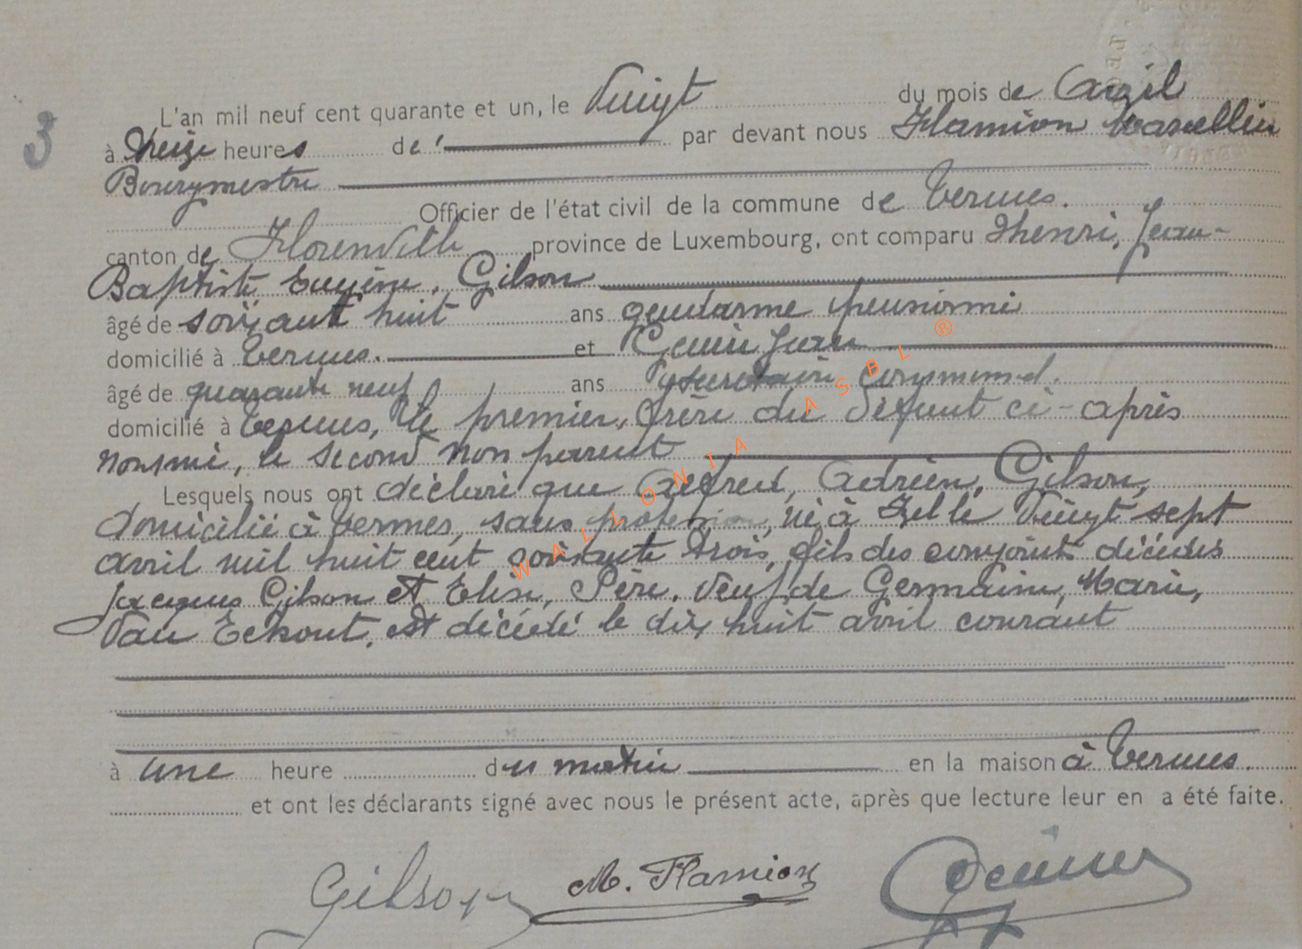 3
L'an mil neuf cent quarante et un, le Vingt du mois de Avril
à treize heures de par devant nous Flamion Marcellin
Bourgmestre
Officier de l'état civil de la commune de Termes.
canton de Florenville province de Luxembourg, ont comparu Henri, Jean-
Baptiste Eugène, Gilson
âgé de soixante huit ans gendarme pensionné
domicilié à Termes. et Jean
âgé de quarante neuf ans secrétaire communal.
domicilié à Termes, le premier, frère du défunt ci-après
nommé, le second non parent
Lesquels nous ont déclaré que Alfred, Adrien, Gilson,
domicilié à Termes, sans profession, né à le vingt sept
avril mil huit cent soixante trois, fils des conjoints décédés
Jacques Gilson et Elise, Père. Veuf de Germaine, Marie,
Van Eckout. est décédé le dix huit avril courant
à une heure du matin en la maison à Termes.
et ont les déclarants signé avec nous le présent acte, après que lecture leur en a été faite.
Gilson M. Flamion
WALLONIA ASBL ®